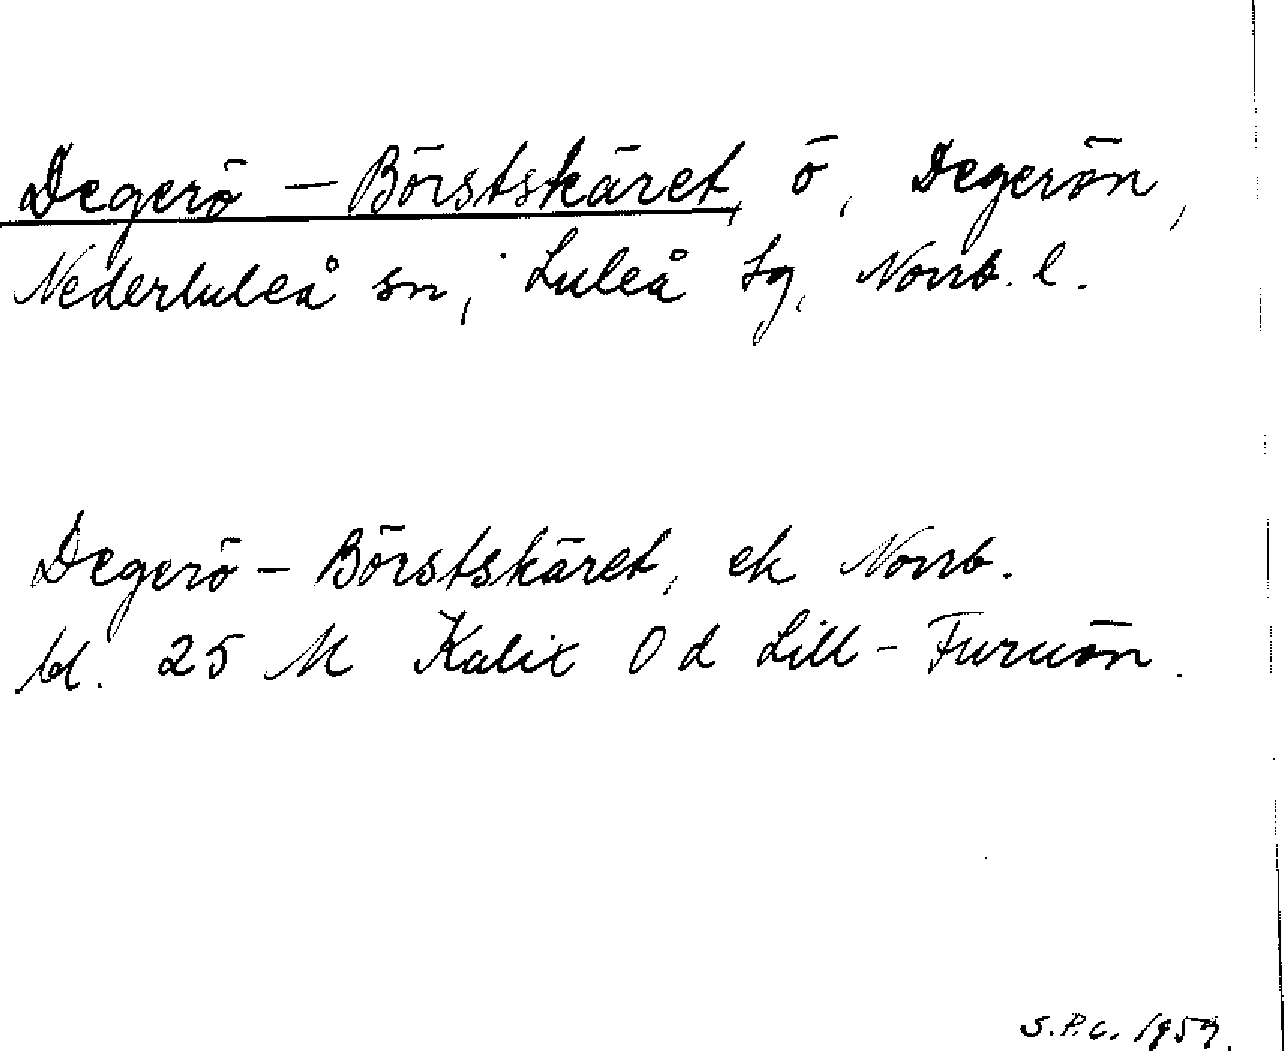 Degerö – Börstskäret, ö, Degerön,
Nederluleå sn, Luleå tg, Norrb. l.
Degerö – Börstskäret, ek Norrb.
bl. 25 M Kalix O d Lill – Furuön.
S.P.C. 1959.